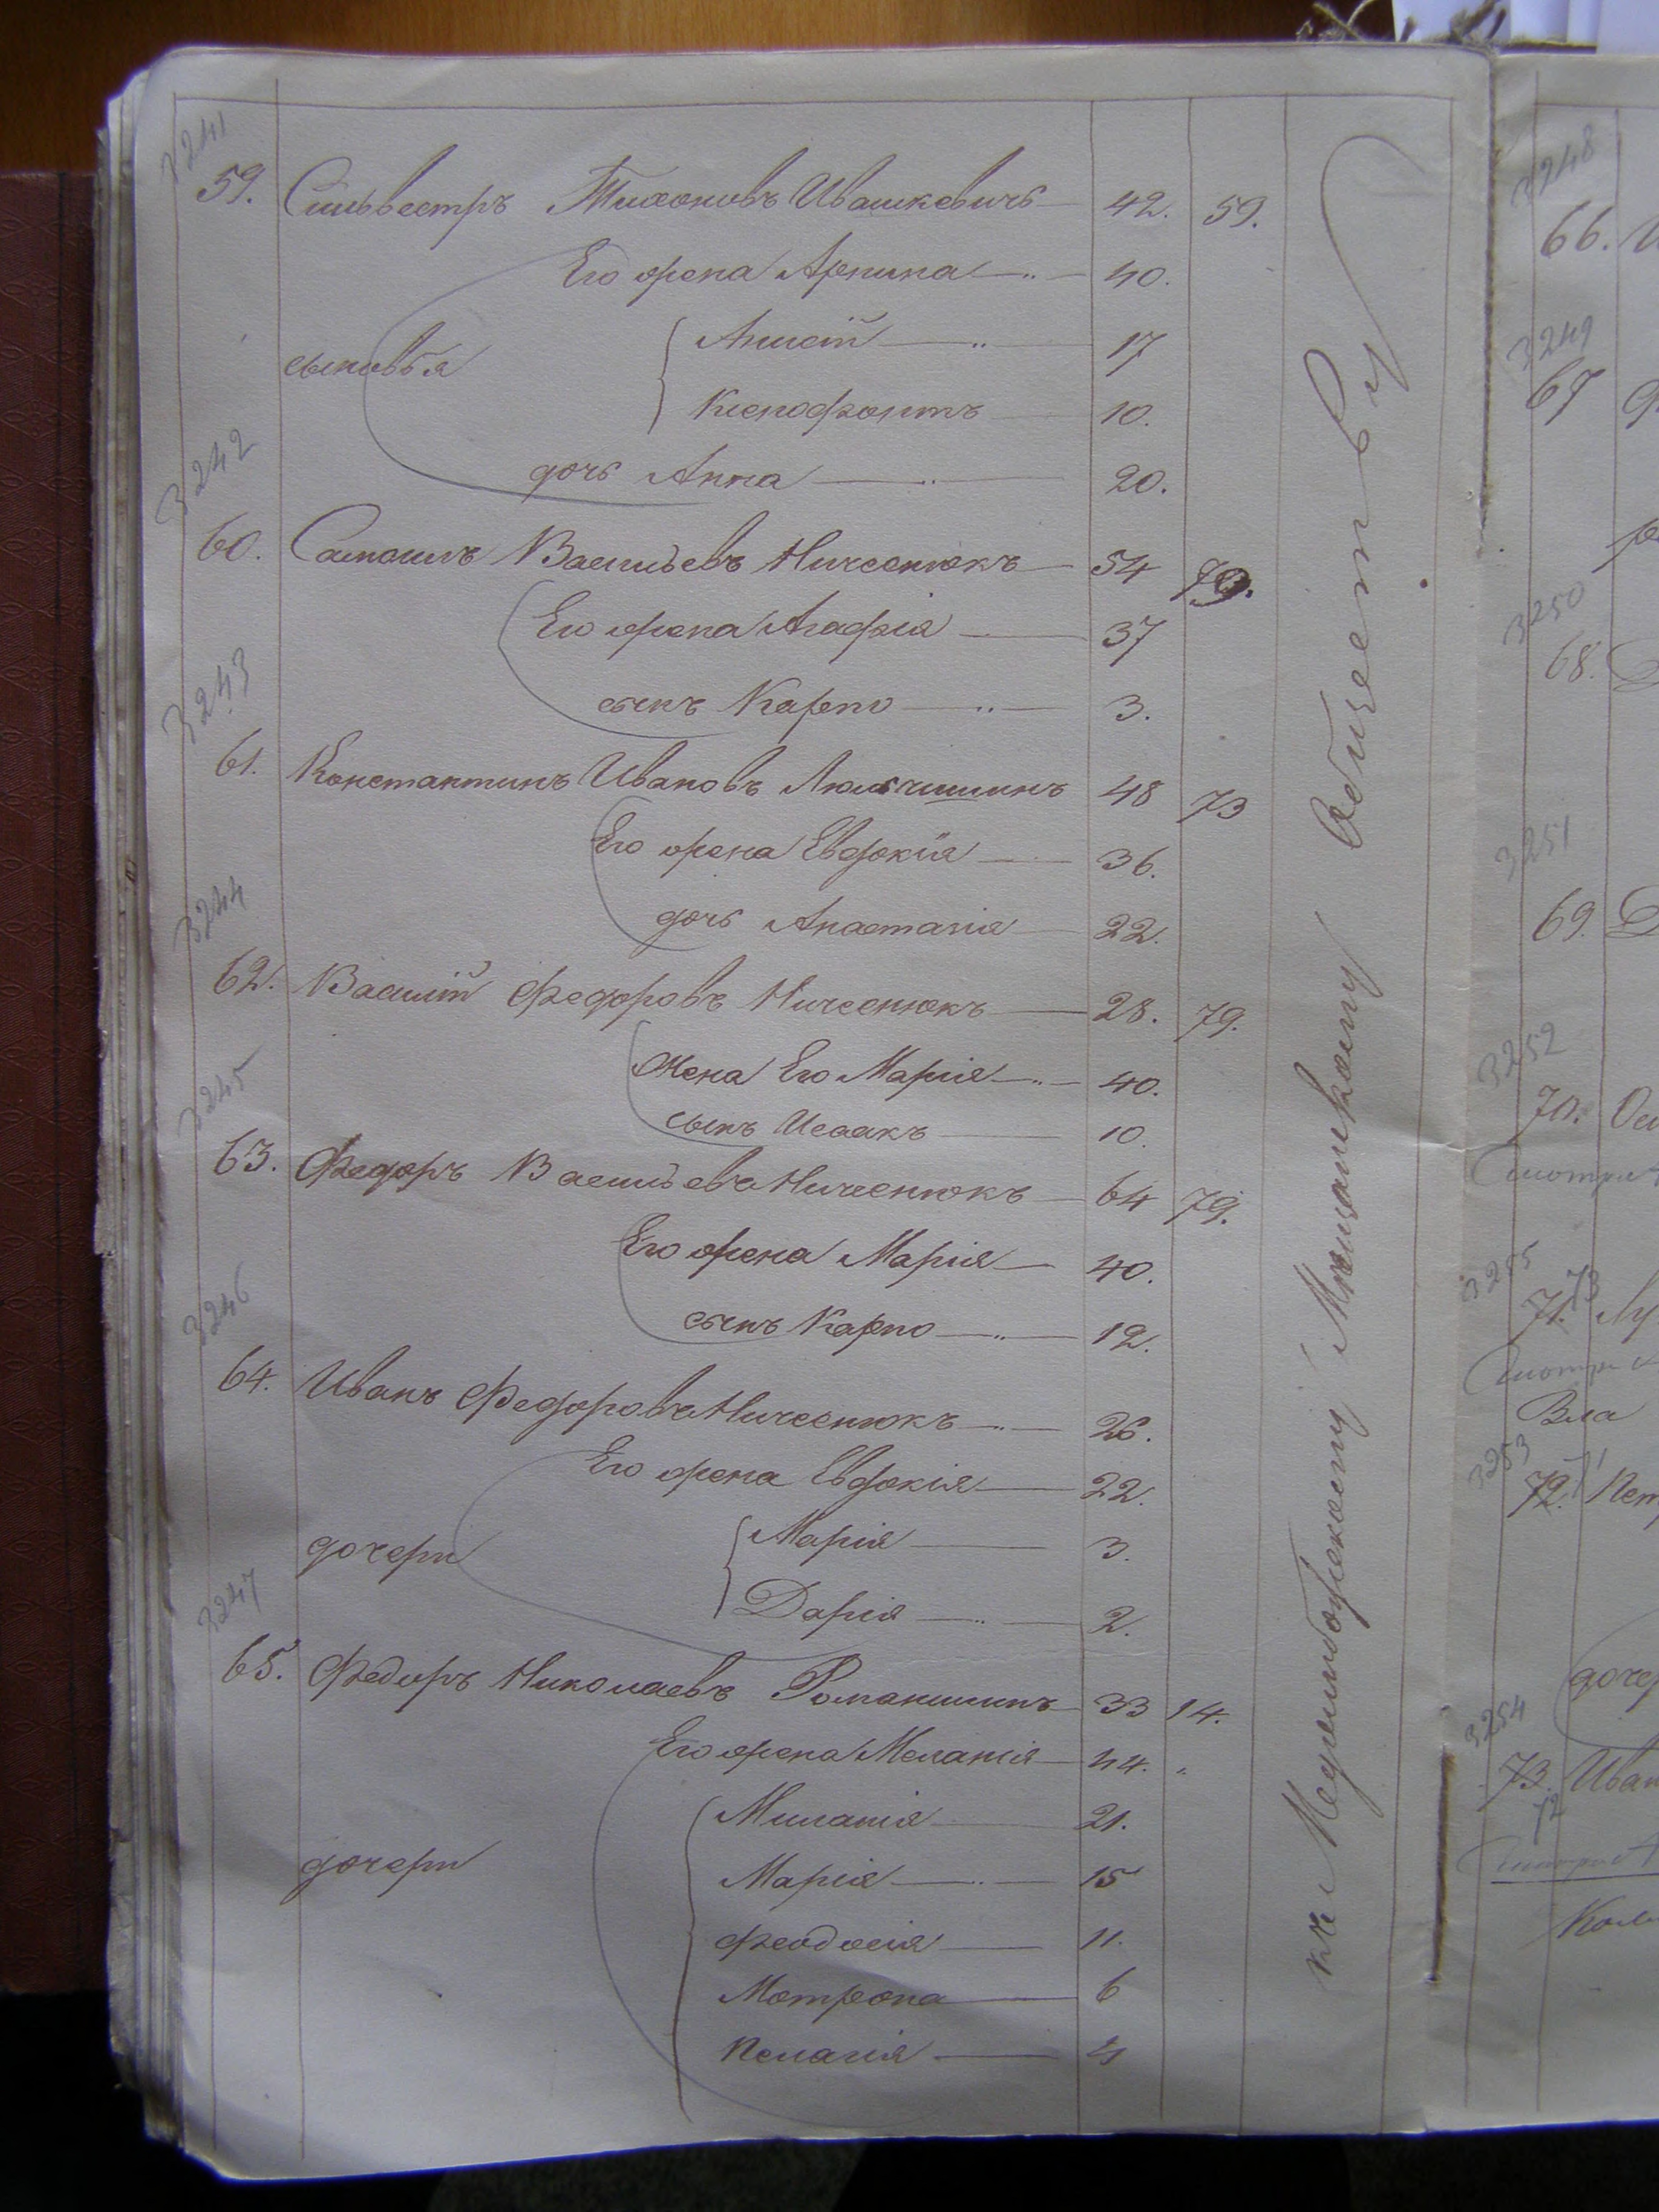 3241
59. Сильвестръ Тихоновъ Ивашкевичъ 42. 59.
Его жена Арпина 40.
сыновья
17
Ксенофонтъ 10.
дочь Анна 20.
3242
60. Самоилъ Васильевъ Ничеснюкъ 54 79.
Его жена Агафія 37
сынъ Карпо 3.
3243
61. Константинъ Ивановъ 48 73
Его жена Евдокія 36.
дочь Анастасія 22.
3244
62. Василій Федоровъ Ничеснюкъ 28. 79.
Жена Его Марія 40.
сынъ Исаакъ 10.
3245
63. Федоръ Васильевъ Ничеснюкъ 64 79.
Его жена Марія 40.
сынъ Карпо 12.
3246
64. Иванъ Федоровъ Ничеснюкъ 26.
Его жена Евдокія 22.
дочери
Марія 3.
Дарія 2.
3247
65. Федоръ Николаевъ Романишинъ 33 14.
Его жена Меланія 44.
дочери
Миланія 21.
Марія 15
Феодосія 11.
Мотрона 6
Пелагія 4
къ Меджибожскому Мѣщанскому Обществу
3248
66.
3249
67
3250
68.
3251
69.
3252
70.
3255
71. 73
Смотри
3253
72. 71
дочер
3254
73. Иван
72